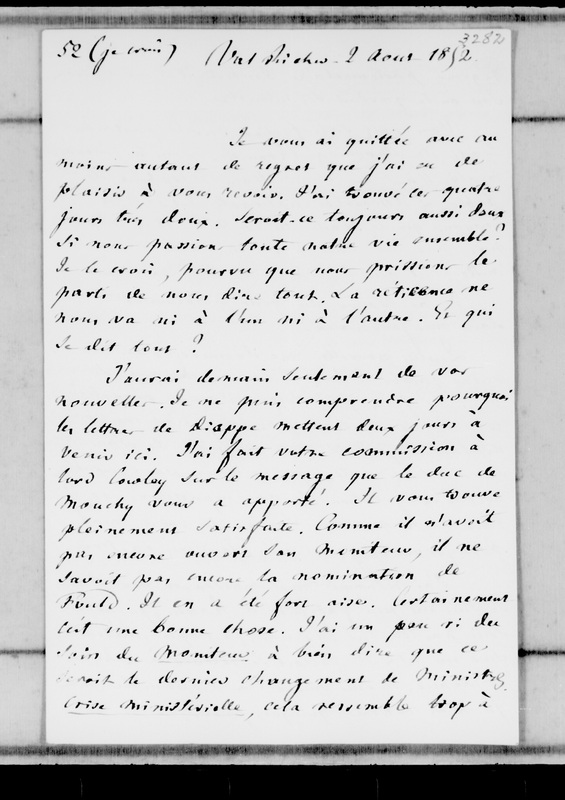 3282
52 (je crois) Val Richer - 2 Aout 1852.
Je vous ai quittée avec au
moins autant de regret que j'ai eu de
plaisir à vous revoir. J'ai trouvé ces quatre
jours très doux. Seroit-ce toujours aussi doux
si nous passions toute notre vie ensemble ?
Je le crois, pourvu que nous prissions le
parti de nous dire tout. La réticence ne
nous va ni à l'un ni à l'autre. Et qui
se dit tout ?
J'aurai demain seulement de vos
nouvelles. Je ne puis comprendre pourquoi
les lettres de Dieppe mettent deux jours à
venir ici. J'ai fait votre commission à
lord Cowley sur le message que le duc de
Mouchy vous a apporté. Il vous trouve
pleinement satisfaite. Comme il n'avoit
pas encore ouvert son Moniteur, il ne
savoit pas encore la nomination de
Fould. Il en a été fort aise. Certainement
c'est une bonne chose. J'ai un peu ri du
soin du Moniteur à bien dire que ce
seroit le dernier changement de Ministres.
Crise ministérielle, cela ressemble trop à